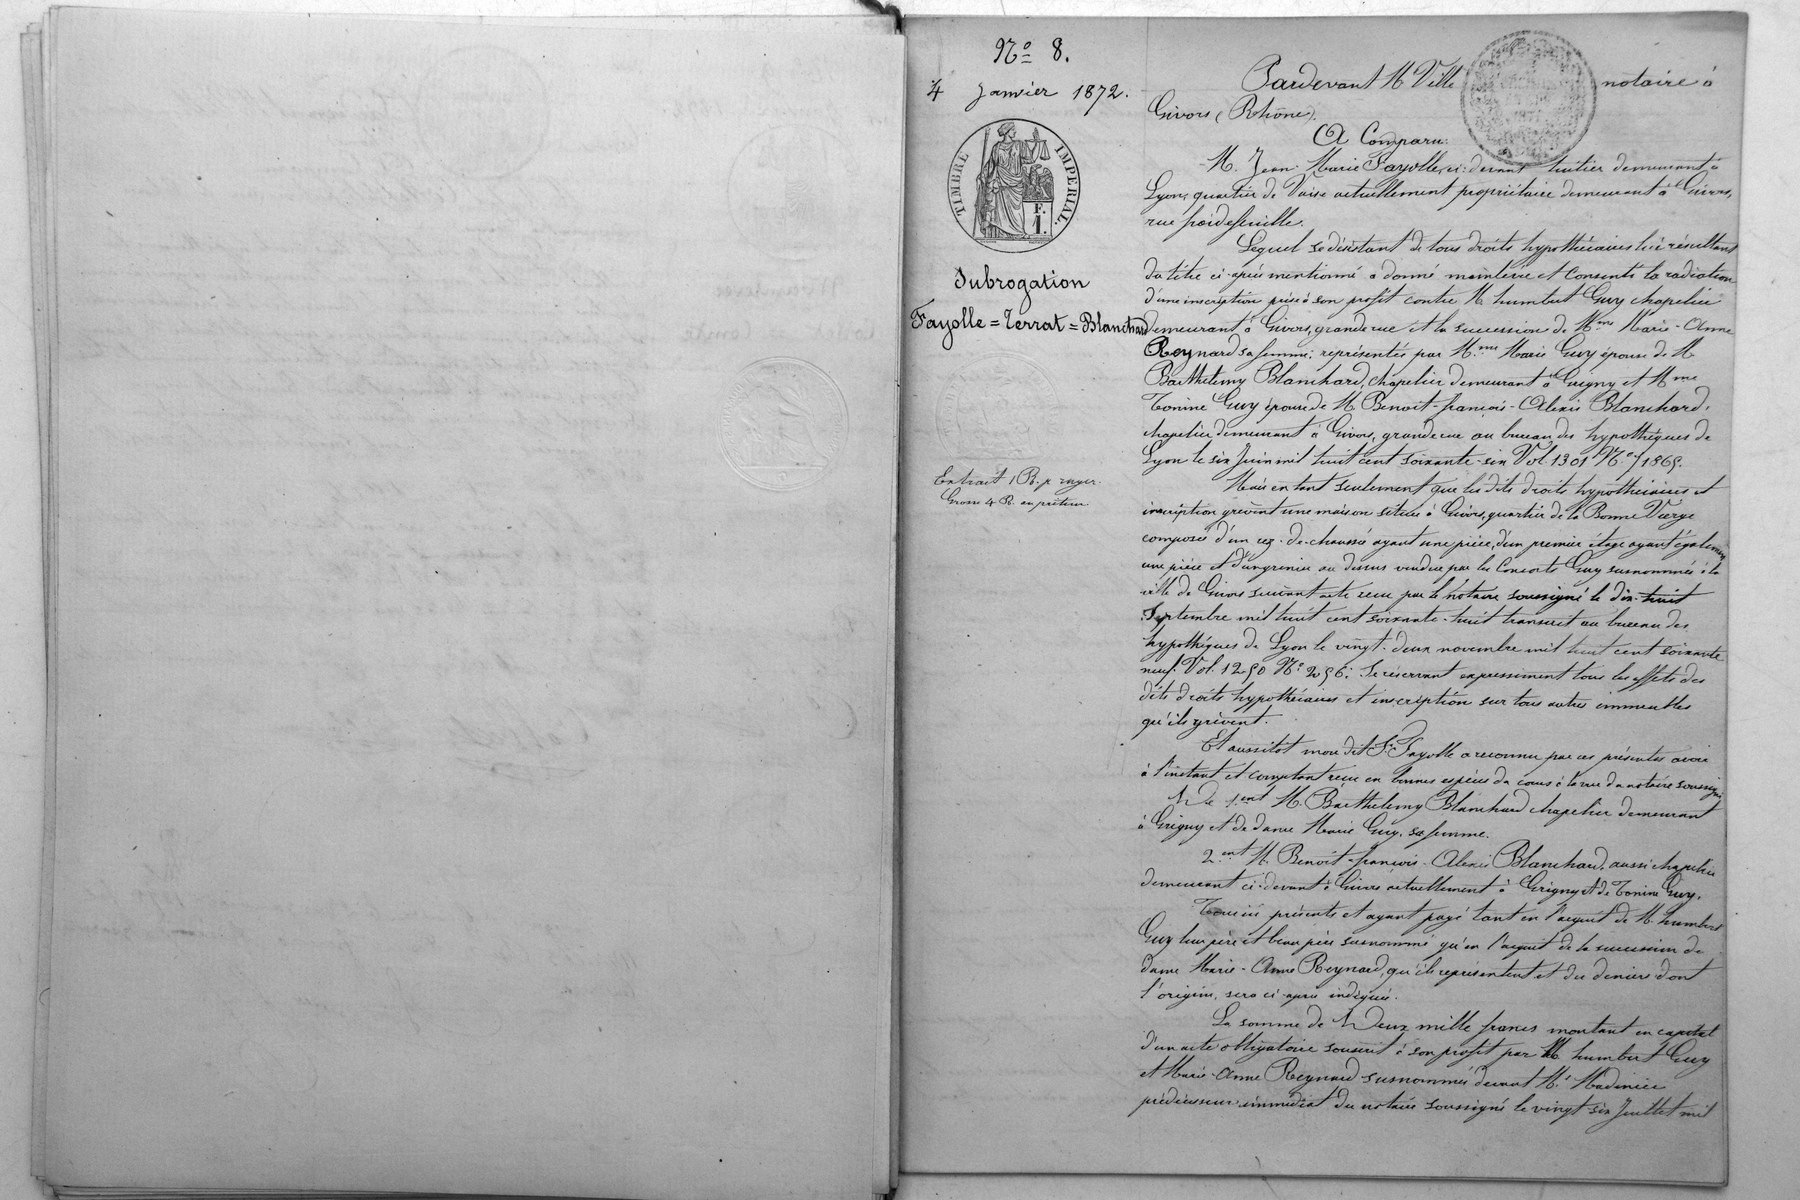 No 8.
4 Janvier 1872.
TIMBRE IMPERIAL.
F.
1.
Subrogation
Fayolle = Terrat = Blanchard
Extrait 1 R. p rayer.
Grosse 4 R. en prêteur.
Pardevant Me Ville notaire à
Givors (Rhône).
A Comparu:
M. Jean-Marie Fayolle, ci-devant laitier demeurant à
Lyon, quartier de Vaise actuellement propriétaire demeurant à Givors,
rue
Lequel se désistant de tous droits hypothécaires lui résultant
du titre ci-après mentionné a donné mainlevée et Consenti la radiation
d'une inscription prise à son profit contre M humbert Guy chapelier
demeurant à Givors, grande rue et la succession de Mme Marie-Anne
Reynard sa femme; représentés par Mme Marie Guy épouse de M
Barthelemy Blanchard, chapelier demeurant à Grigny et Mme
Tonine Guy épouse de M Benoit-françois-Alexis Blanchard,
chapelier demeurant à Givors, grande rue au bureau des hypothèques de
Lyon le six Juin mil huit cent soixante-six Vol. 1301 No
Mais en tant seulement que les dits droits hypothécaires et
inscription grèvent une maison située à Givors, quartier de la Bonne Vierge
composée d'un rez-de-chaussé ayant une pièce, d'un premier étage ayant également
une pièce et d'un grenier au dessus vendue par les Consorts Guy susnommés à la
ville de Givors suivant acte reçu par le notaire soussigné le dix-huit
Septembre mil huit cent soixante-huit transcrit au bureau des
hypothèques de Lyon le vingt-deux novembre mil huit cent soixante
neuf Vol. 1290 No 296; Se réservant expressement tous les effets des
dits droits hypothécaires et inscription sur tous autres immeubles
qu'ils grèvent.
Et aussitot mon dit Sr Fayolle a reconnu par ces présentes avoir
à l'instant et comptant reçu en bonnes espèces du cours à la vue du notaire soussigné
De 1ent M. Barthelemy Blanchard chapelier demeurant
à Grigny et de dame Marie Guy, sa femme.
2ent M. Benoit-françois-Alexis Blanchard, aussi chapelier
demeurant ci-devant à Givors actuellement à Grigny et de Tonine Guy.
Tous ici présents et ayant payé tant en l'acquit de M. humbert
Guy leur père et beau père susnommé qu'en l'acquit de la succession de
dame Marie-Anne Reynard, qu'ils représentent et des deniers dont
l'origine, sera ci-après indiquée.
La somme de Deux mille francs montant en capital
d'un acte obligatoire souscrit à son profit par M humbert Guy
et Marie-Anne Reynard susnommés devant Me Madinier
prédécesseur immédiat du notaire soussigné le vingt-six Juillet mil